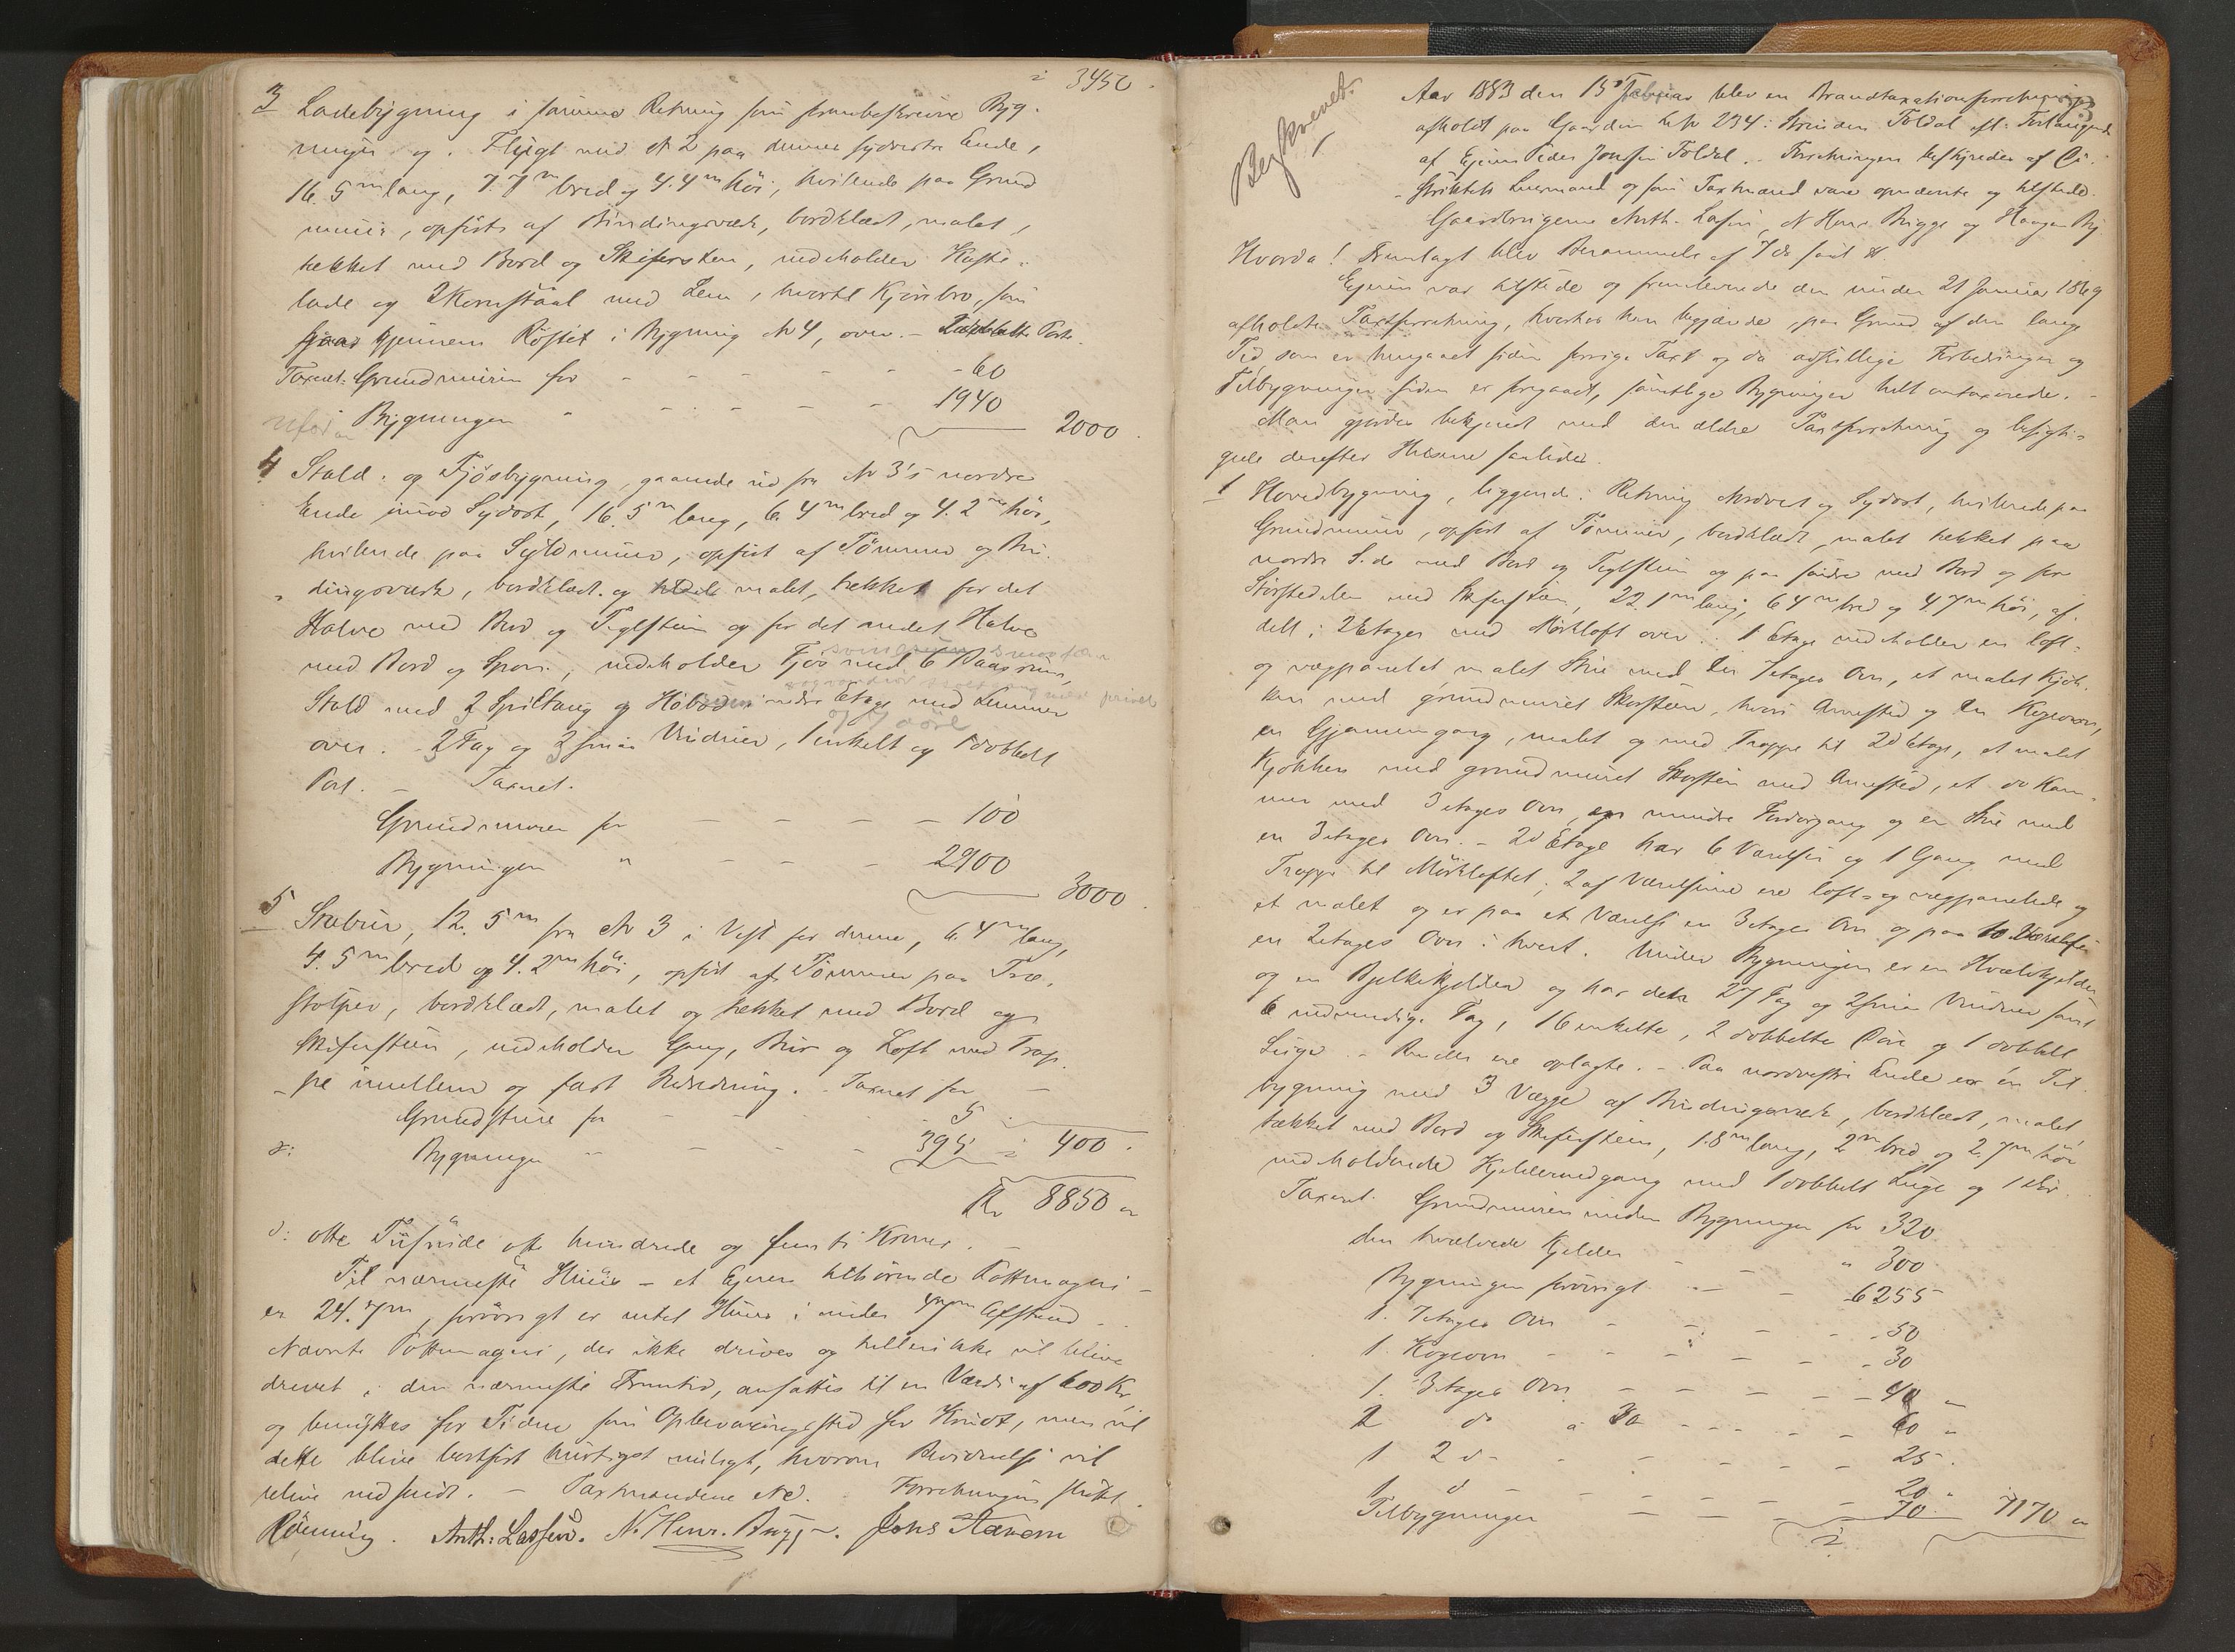 3450.
3 Ladebygning i samme Retning som foranbeskrevne Byg-
ninger og i Flugt med N 2 paa dennes sydvestre Ende,
16.5 m lang, 7.7 m bred og 4.4 m höi, hvilende paa Grund
muur, opfört af Bindingsværk, bordklædt, malet,
tækket med Bord og Skifersten, indeholder Kaste-
lade og 2 Kornstaal med Lem, hvortil Kjörebro, som
gaar gjennem Röstet i Bygning N 4, over. - Dobbelte Porte.
Taxeret: Grundmuren for - - - - - 60
Bygningen " - - - - 1940
2000.
4 Stald- og Fjösbygning, gaaende ud fra N 3's nordre
Ende imod Sydost, 16.5 m lang, 6.4 m bred og 4.2 m höi,
hvilende paa Syldmuur, opfört af Tömmer og Bin-
dingsværk, bordklædt og malet, tækket for det
Halve med Bord og Teglsten og for det andet Halve
med Bord og Spon, indeholder Fjös med 6 Baasrum,
Stald med 2 Spiltoug og Höbod i nedre Etage med Lemmer
over. - 2 Fag og 3 smaa Vinduer, 1 enkelt og 1 dobbelt
Port. - Taxeret.
Grundmuren for - - - - 100
Bygningen " - - - 2900
3000.
5 Stabur, 12.5 m fra N 3 i Vest for denne, 6.4 m lang,
4.5 m bred og 4.2 m höi, opfört af Tömmer paa Træ-
stolper, bordklædt, malet og tækket med Bord og
Skifersten, indeholder Gang, Bur og Loft med Trap-
pe imellem og fast Indredning. - Taxeret for
Grundstene for - - - 5
Bygningen " - - - 395 = 400.
Kr 8850
o: otte Tusinde otte hundrede og femti Kroner. -
Til nærmeste Huus - et Eieren tilhörende Pottmageri -
er 24.7 m, forövrigt er intet Huus i under Afstand.
Nævnte Pottmageri, der ikke drives og heller ikke vil blive
drevet i den nærmeste Fremtid, ansattes til en Værdi af 600 Kr,
og benyttes for Tiden som Opbevaringssted for Krudt, men vil
dette blive bortfört hurtigst muligt, hvorom Bevidnelse vil
blive indsendt. - Taxmændene Ed. Forretningen sluttet.
Rönning. Anth: Lassen. N. Henr. Bugge. Johs Stavern
Beskrevet.
Aar 1883 den 15 Februar blev en Brandtaxationsforretning
afholdt paa Gaarden L No 234 i Strinden Toldal eft. Forlangende
af Eieren Peder Jonsen Toldal. - Forretningen bestyredes af Di-
striktets Lensmand og som Taxtmænd vare opnævnte og tilstede
Gaardbrugerne Anth. Lassen, N Henr Bugge og Haagen By
Hvorda! Fremlagt blev Berammelse af 7 ds saal. #
Eieren var tilstede og fremleverede den under 21 Januar 1869
afholdte Taxtforretning, hvorhos han begjærede paa Grund af den lange
Tid som er hengaaet siden forrige Taxt og da adskillige Forbedringer og
Tilbygninger siden er foregaaet, samtlige Bygninger helt omtaxerede. -
Man gjorde bekjendt med den ældre Taxtforretning og besigti-
gede derefter Husene saaledes.
1 Hovedbygning, liggende i Retning Nordvest og Sydost, hvilende paa
Grundmuur, opfört af Tömmer, bordklædt, malet tækket paa
nordre Side med Bord og Teglsten og paa söndre med Bord og for
Störstedelen med Skifersten, 22.1 m lang, 6.4 m bred og 4.7 m höi, af-
delt i 2 Etager med Mörkloft over. 1 Etage indeholder en loft-
og vægpanelet malet Stue med En 7 etages Ovn, et malet Kjök-
ken med grundmuret Skorsten, hvori Arnested og En Kogeovn,
en Gjennemgang, malet og med Trappe til 2d Etage, et malet
Kjökken med grundmuret Skorsten med Arnested, et do Kam-
mer med 3 etages Ovn, en mindre Fordergang og en Stue med
en 3 etages Ovn. - 2d Etage har 6 Værelser og 1 Gang med
Trappe til Mörkloftet, 2 af Værelserne ere loft- og vægpanelede og
et malet og er paa et Værelse en 3 etages Ovn og paa to Værelser
en 2 etages Ovn i hvert. Under Bygningen er en Hvælvkjelder
og en Bjelkekjelder og har dette 27 Fag og 2 smaa Vinduer samt
6 indvendige Fag, 16 enkelte, 2 dobbelte Döre og 1 dobbelt
Luge. - ere oplagte. - Paa nordvestre Ende er en Til-
bygning med 3 Vægge af Bindingsværk, bordklædt, malet,
tækket med Bord og Skifersten, 1.8 m lang, 2 m bred og 2.7 m höi
indeholdende Kjeldernedgang med 1 dobbelt Luge og 1 Dör.
Taxeret. Grundmuren under Bygningen for 320
den hvælvede Kjelder " 300
Bygningen forövrigt - - - 6255
1. 7 etages Ovn - - - - 50
1. Kogeovn - - " - - - 30
1. 3 etages Ovn - - - - - 40 "
2 do a 30 - - - - 60 "
1 2 d - - - - - 25.
1 d - - - - - 20 "
Tilbygningen - - - - 70 7170